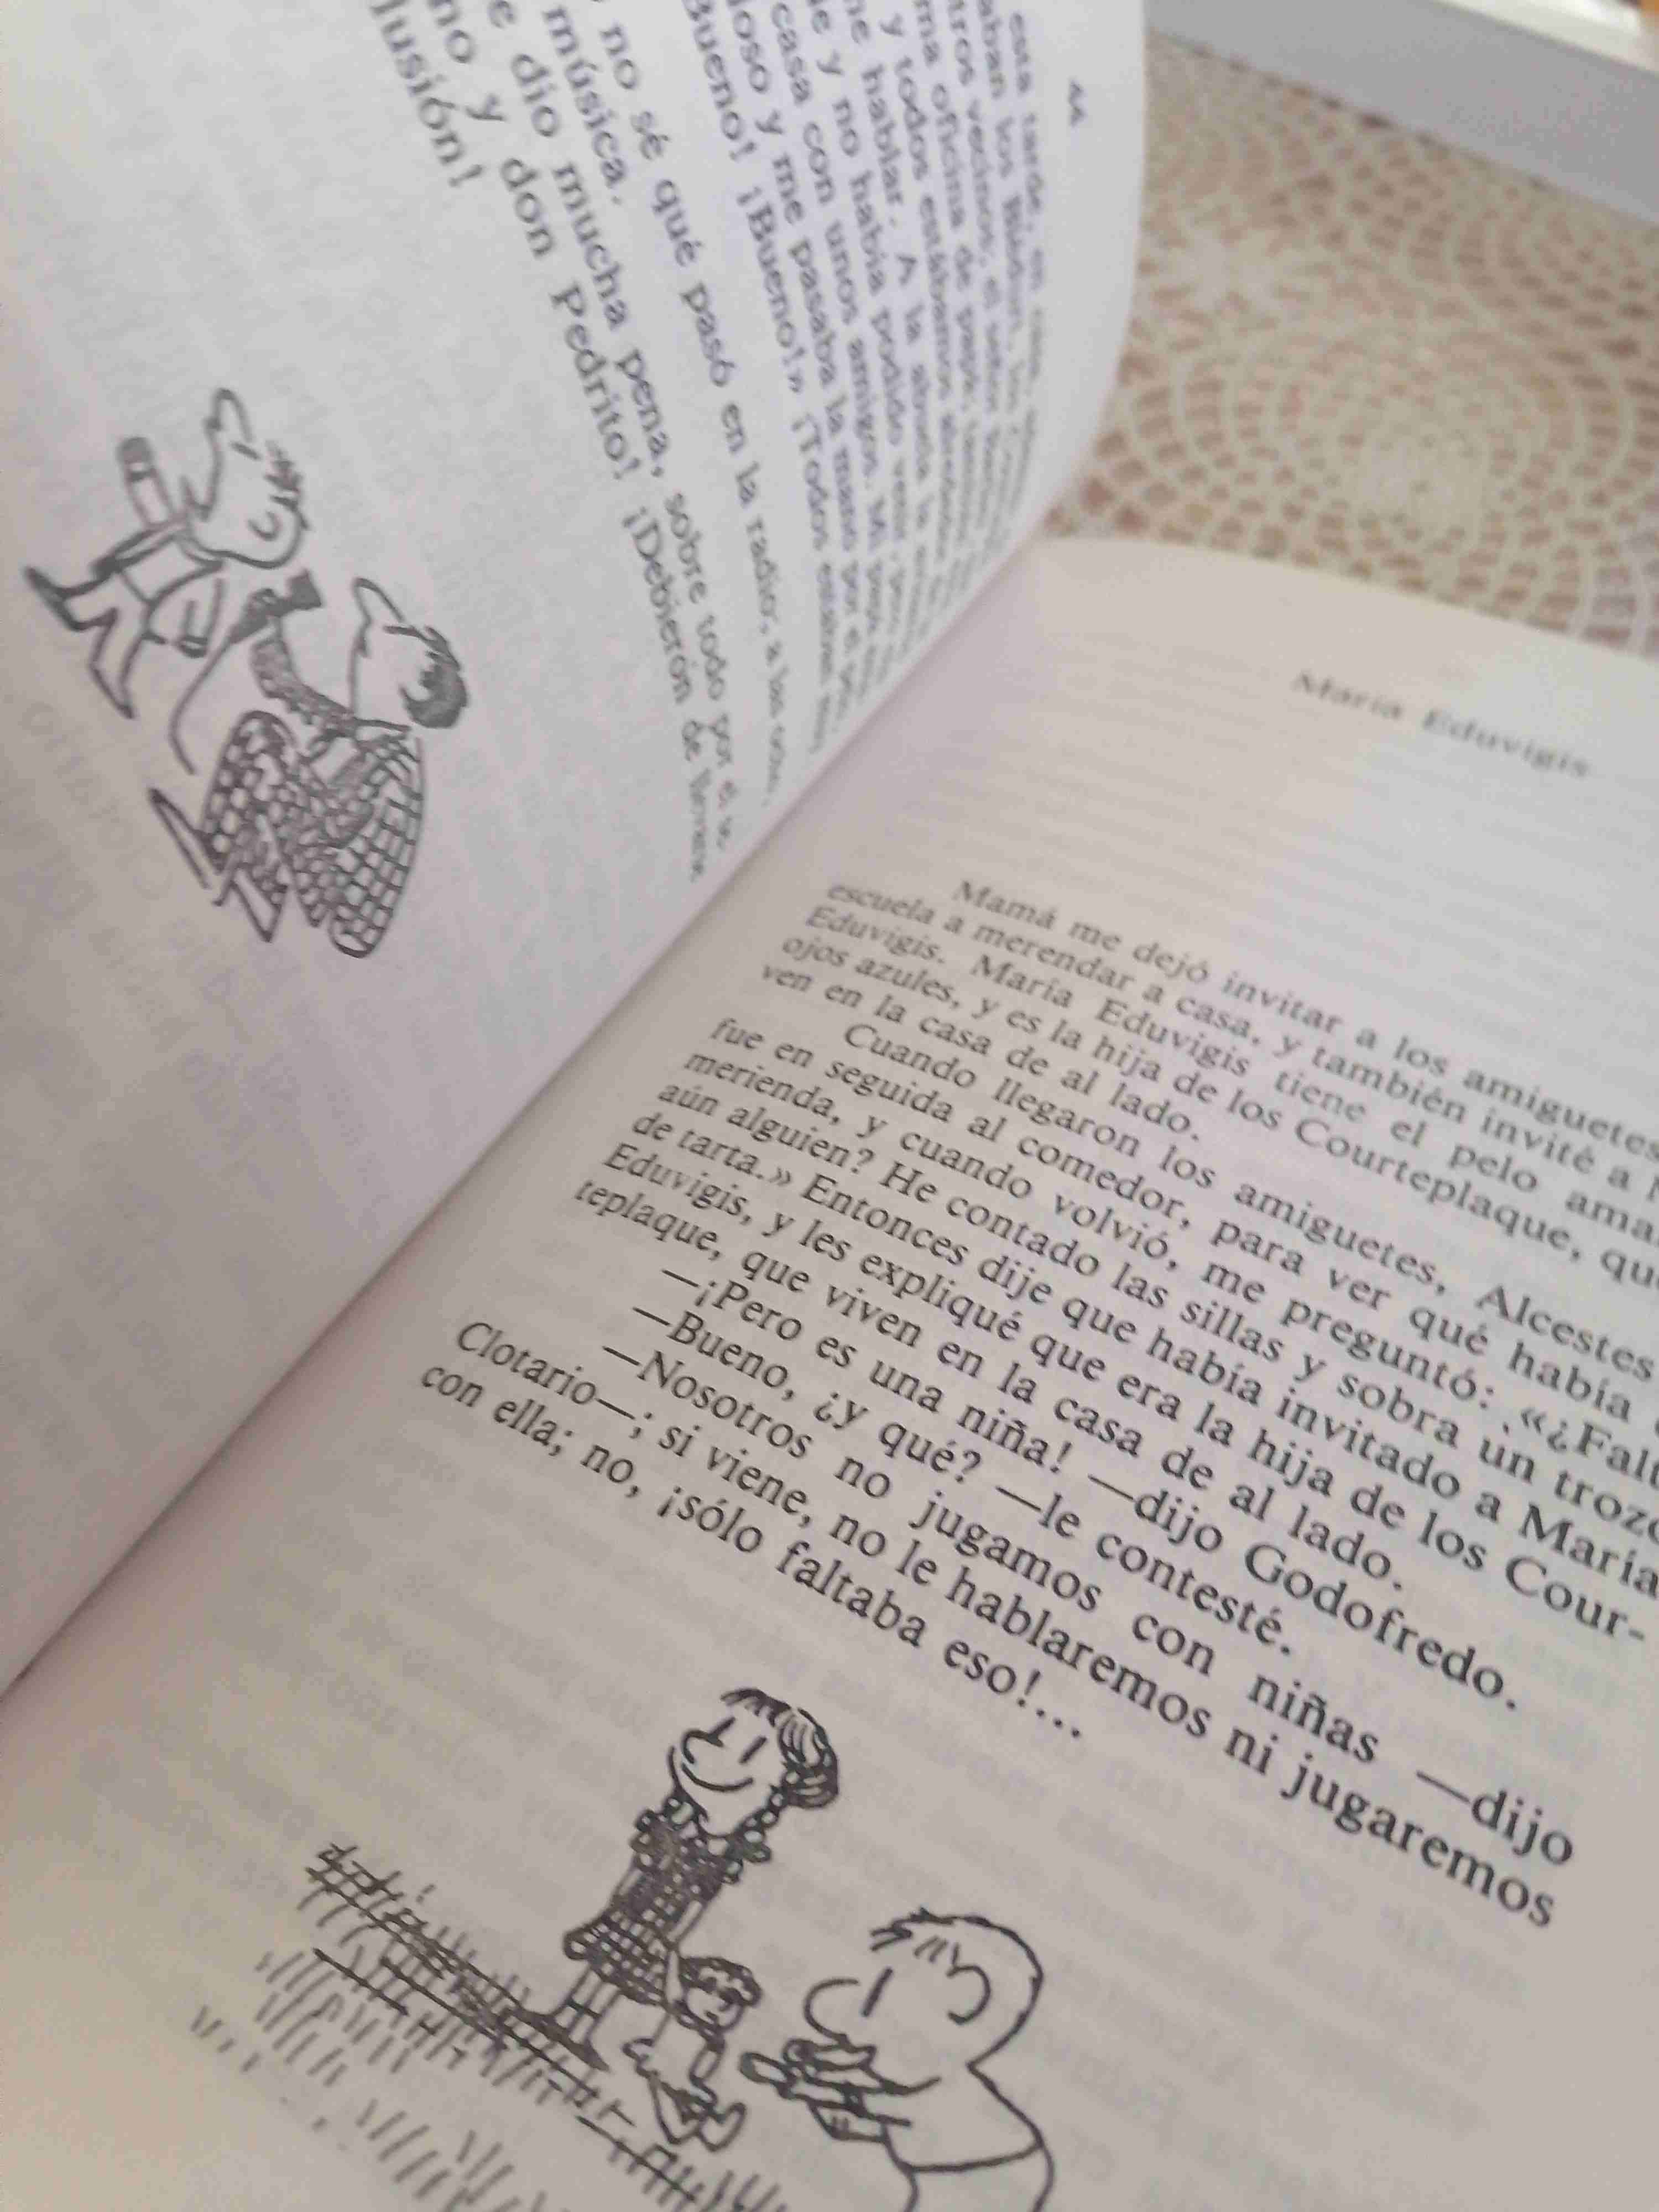 44
esta tarde, en
aban los Blédurt, los
tros vecinos, el señor
ma oficina de papá,
y todos estábamos alrededor
me hablar. A la abuela la
de y no había podido venir,
casa con unos amigos. Mi papá
loso y me pasaba la mano por el
Bueno! ¡Bueno!» ¡Todos estaban
no sé qué pasó en la radio; a las ocho,
música.
e dio mucha pena, sobre todo por
no y don Pedrito! ¡Debieron de llevarse
lusión!
María Eduvigis
Mamá me dejó invitar a los amiguetes
escuela a merendar a casa, y también invité a
Eduvigis. María Eduvigis tiene el pelo ama
ojos azules, y es la hija de los Courteplaque, qu
ven en la casa de al lado.
Cuando llegaron los amiguetes, Alcestes
fue en seguida al comedor, para ver qué había
merienda, y cuando volvió, me preguntó: «¿Falt
aún alguien? He contado las sillas y sobra un trozo
de tarta.» Entonces dije que había invitado a María
Eduvigis, y les expliqué que era la hija de los Cour-
teplaque, que viven en la casa de al lado.
—¡Pero es una niña! —dijo Godofredo.
—Bueno, ¿y qué? —le contesté.
—Nosotros no jugamos con niñas —dijo
Clotario—; si viene, no le hablaremos ni jugaremos
con ella; no, ¡sólo faltaba eso!...